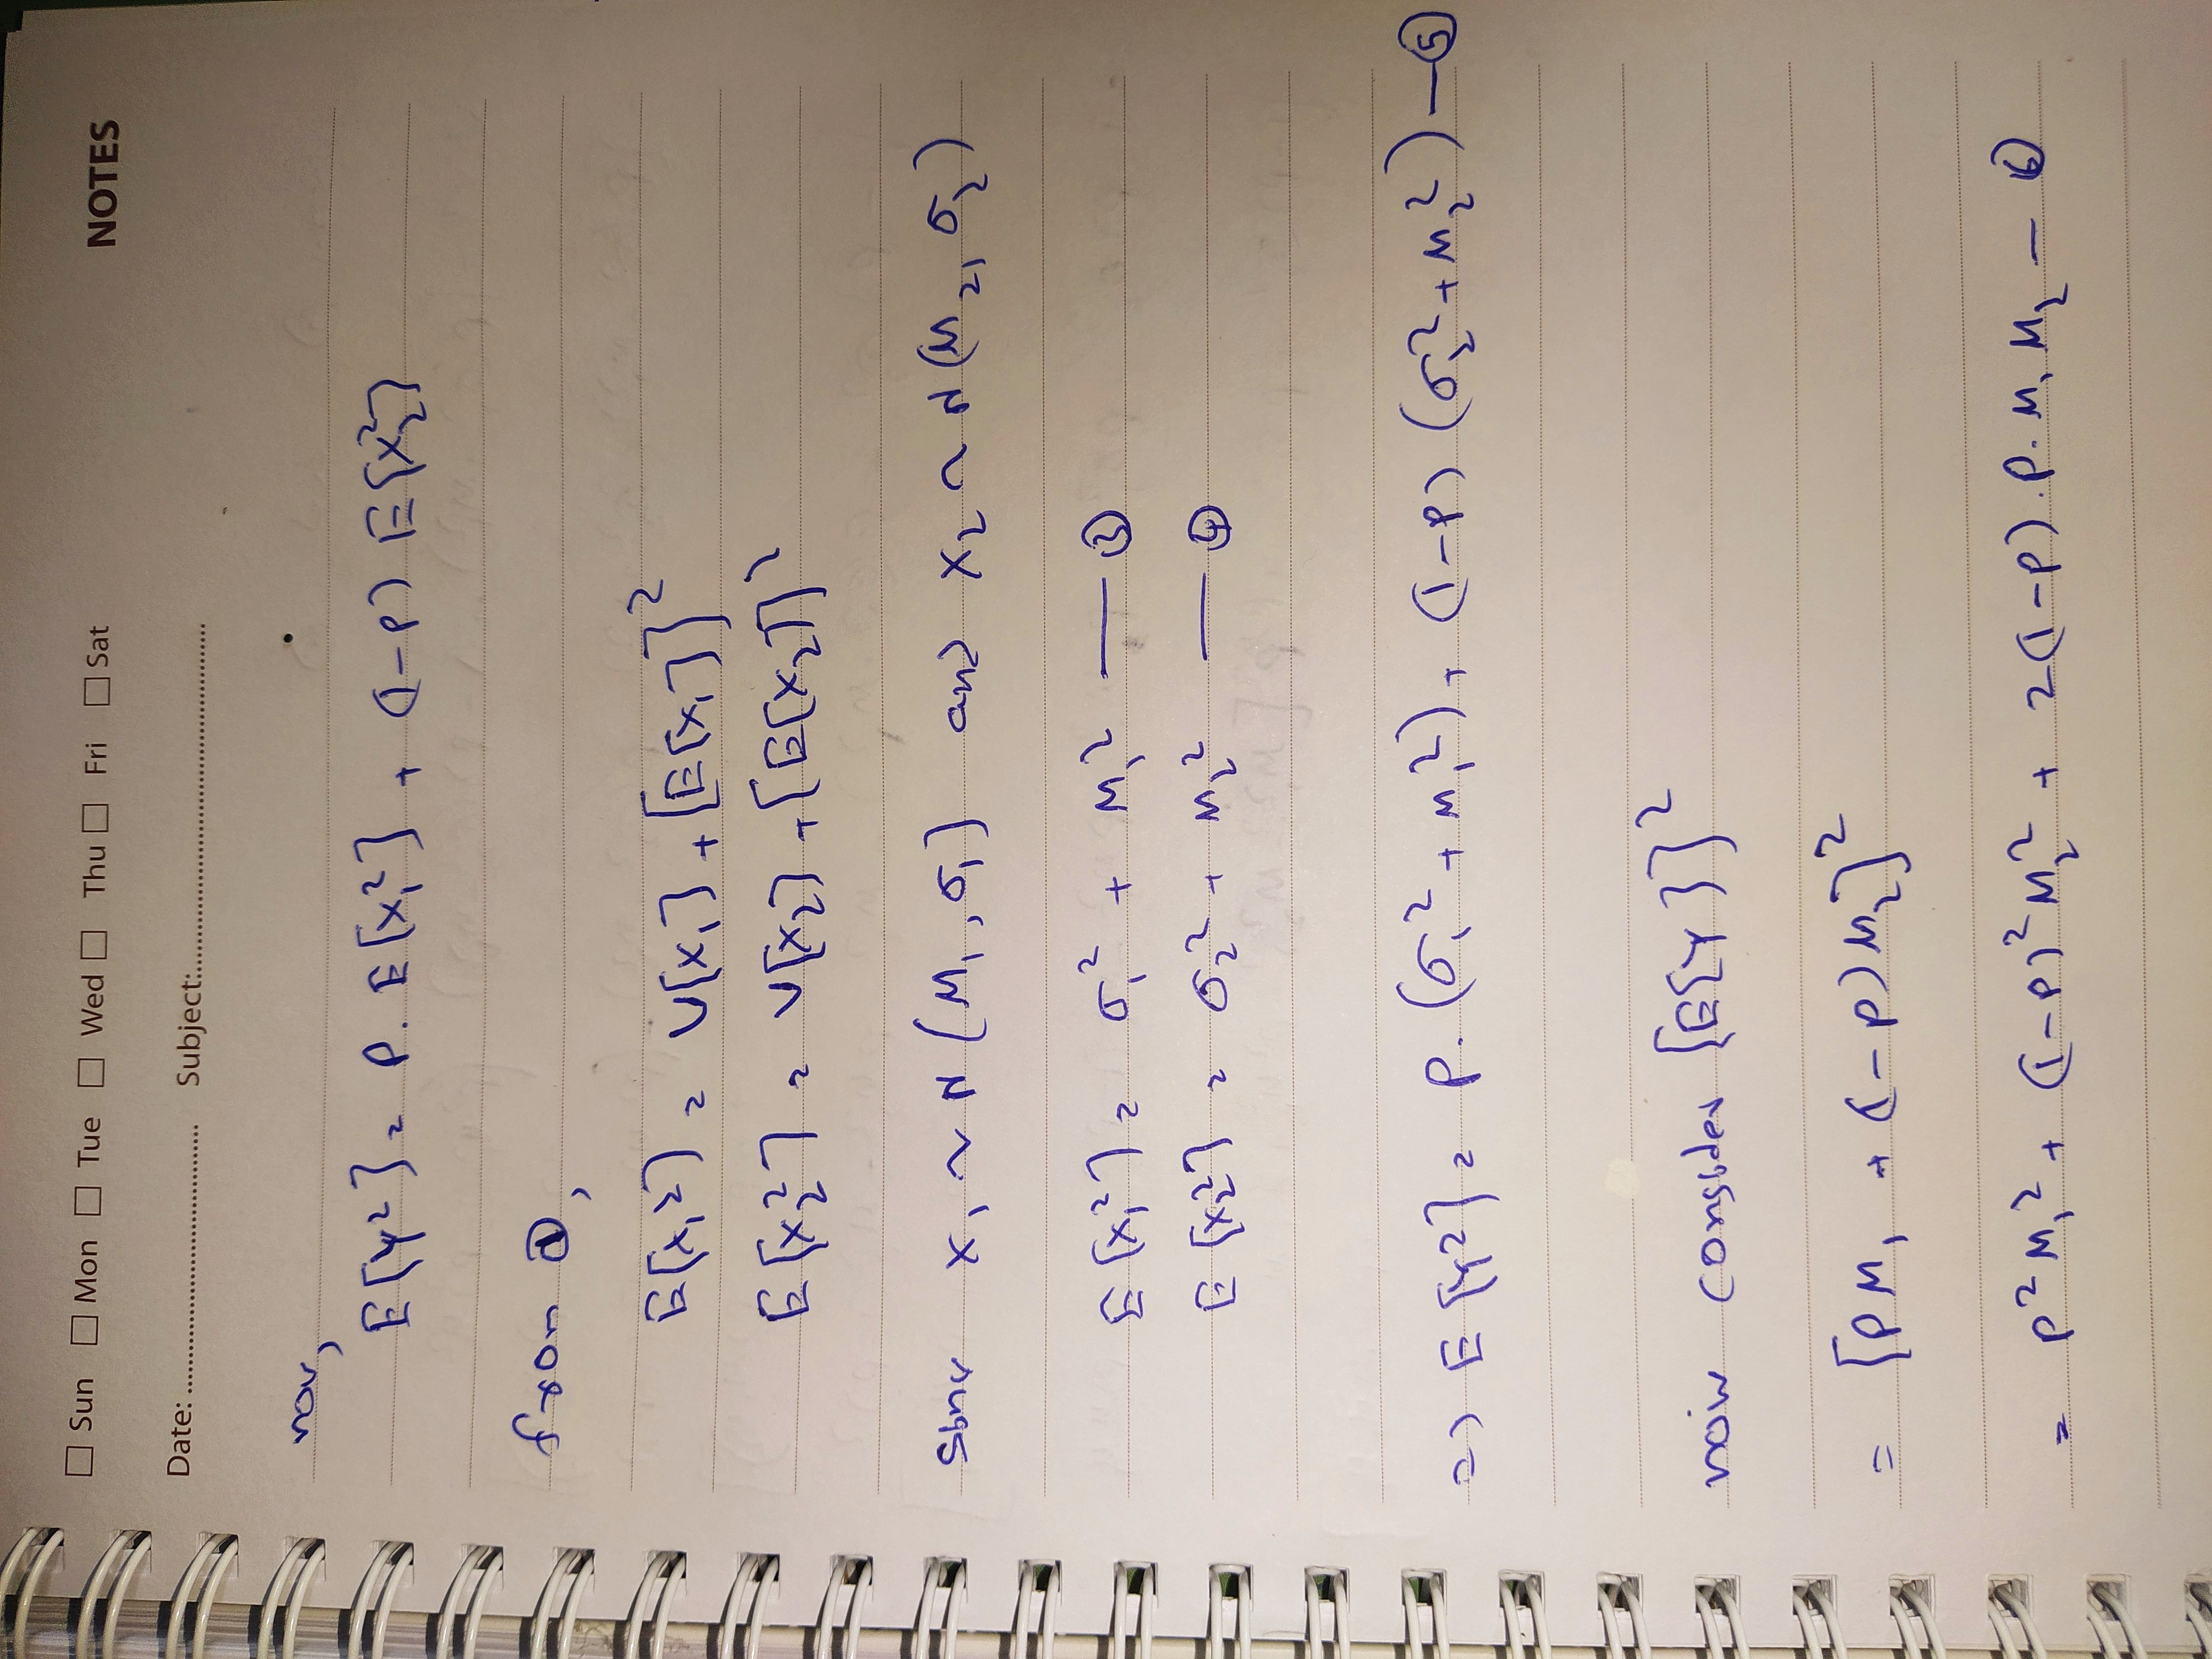 Sun Mon Tue Wed Thu Fri Sat
NOTES
Date: ........................ Subject:........................
now,
E[Y²] = P. E[X₁²] + (1-P) E[X₂²]
from ①,
E[X₁²] = V[X₁] + [E[X₁]]²
E[X₂²] = V[X₂] + [E[X₂]]²
Since X₁ ~ N(M₁, σ₁) and X₂ ~ N(M₂, σ₂)
E[X₁²] = σ₁² + M₁² — ③
E[X₂²] = σ₂² + M₂² — ④
=> E[Y²] = P. (σ₁² + M₁²) + (1-P) (σ₂² + M₂²) — ⑤
now consider [E[Y]]²
= [PM₁ + (1-P)M₂]²
= P²M₁² + (1-P)²M₂² + 2(1-P).P.M₁M₂ — ⑥